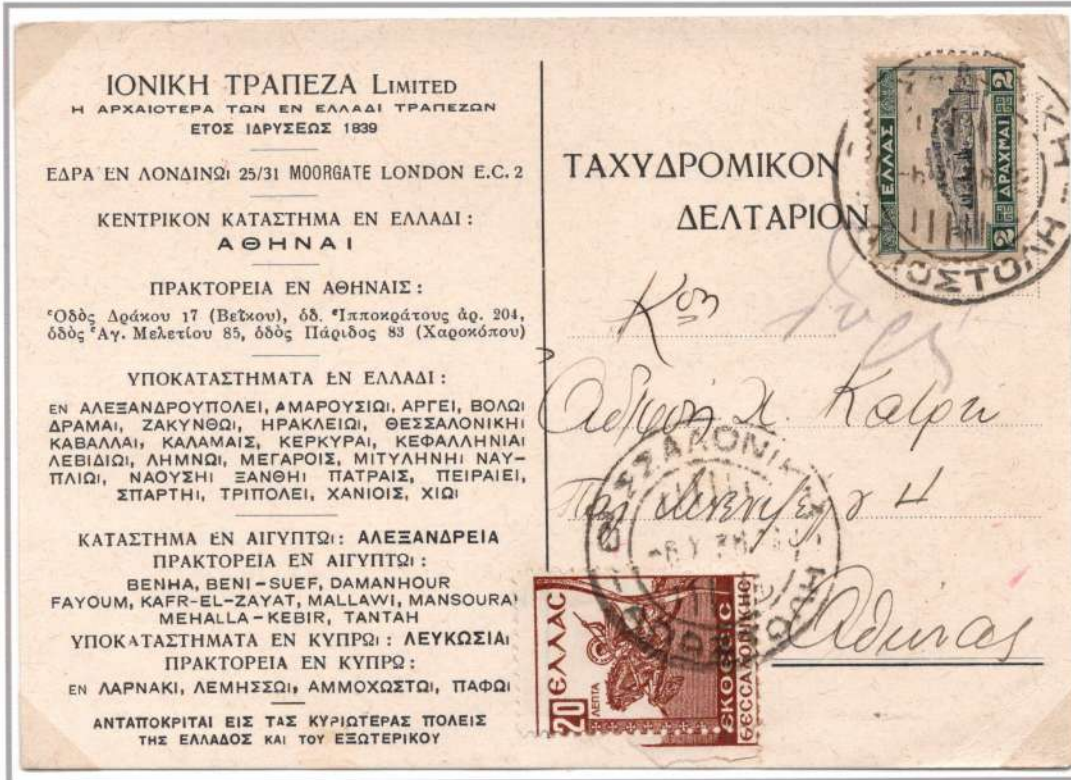 ΙΟΝΙΚΗ ΤΡΑΠΕΖΑ LIMITED
Η ΑΡΧΑΙΟΤΕΡΑ ΤΩΝ ΕΝ ΕΛΛΑΔΙ ΤΡΑΠΕΖΩΝ
ΕΤΟΣ ΙΔΡΥΣΕΩΣ 1839
ΕΔΡΑ ΕΝ ΛΟΝΔΙΝΩι 25/31 MOORGATE LONDON E.C. 2
ΚΕΝΤΡΙΚΟΝ ΚΑΤΑΣΤΗΜΑ ΕΝ ΕΛΛΑΔΙ :
ΑΘΗΝΑΙ
ΠΡΑΚΤΟΡΕΙΑ ΕΝ ΑΘΗΝΑΙΣ :
Ὁδὸς Δράκου 17 (Βεΐκου), ὁδ. Ἱπποκράτους ἀρ. 204,
ὁδὸς Ἁγ. Μελετίου 85, ὁδὸς Πάριδος 83 (Χαροκόπου)
ΥΠΟΚΑΤΑΣΤΗΜΑΤΑ ΕΝ ΕΛΛΑΔΙ :
ΕΝ ΑΛΕΞΑΝΔΡΟΥΠΟΛΕΙ, ΑΜΑΡΟΥΣΙΩι, ΑΡΓΕΙ, ΒΟΛΩι
ΔΡΑΜΑΙ, ΖΑΚΥΝΘΩι, ΗΡΑΚΛΕΙΩι, ΘΕΣΣΑΛΟΝΙΚΗΙ
ΚΑΒΑΛΛΑΙ, ΚΑΛΑΜΑΙΣ, ΚΕΡΚΥΡΑΙ, ΚΕΦΑΛΛΗΝΙΑΙ
ΛΕΒΙΔΙΩι, ΛΗΜΝΩι, ΜΕΓΑΡΟΙΣ, ΜΙΤΥΛΗΝΗΙ ΝΑΥ-
ΠΛΙΩι, ΝΑΟΥΣΗΙ ΞΑΝΘΗΙ ΠΑΤΡΑΙΣ, ΠΕΙΡΑΙΕΙ,
ΣΠΑΡΤΗΙ, ΤΡΙΠΟΛΕΙ, ΧΑΝΙΟΙΣ, ΧΙΩι
ΚΑΤΑΣΤΗΜΑ ΕΝ ΑΙΓΥΠΤΩι: ΑΛΕΞΑΝΔΡΕΙΑ
ΠΡΑΚΤΟΡΕΙΑ ΕΝ ΑΙΓΥΠΤΩι :
BENHA, BENI-SUEF, DAMANHOUR
FAYOUM, KAFR-EL-ZAYAT, MALLAWI, MANSOURA
MEHALLA-KEBIR, TANTAH
ΥΠΟΚΑΤΑΣΤΗΜΑΤΑ ΕΝ ΚΥΠΡΩι : ΛΕΥΚΩΣΙΑι
ΠΡΑΚΤΟΡΕΙΑ ΕΝ ΚΥΠΡΩ :
ΕΝ ΛΑΡΝΑΚΙ, ΛΕΜΗΣΣΩι, ΑΜΜΟΧΩΣΤΩι, ΠΑΦΩι
ΑΝΤΑΠΟΚΡΙΤΑΙ ΕΙΣ ΤΑΣ ΚΥΡΙΩΤΕΡΑΣ ΠΟΛΕΙΣ
ΤΗΣ ΕΛΛΑΔΟΣ ΚΑΙ ΤΟΥ ΕΞΩΤΕΡΙΚΟΥ
ΤΑΧΥΔΡΟΜΙΚΟΝ
ΔΕΛΤΑΡΙΟΝ
2 ΕΛΛΑΣ
2 ΔΡΑΧΜΑΙ
Κον
Χ.
Αθήνας
ΘΕΣΣΑΛΟΝΙΚΗ
20 ΕΛΛΑC
ΛΕΠΤΑ
ΕΚΘΕCΙC
ΘΕCCΑΛΟΝΙΚΗC